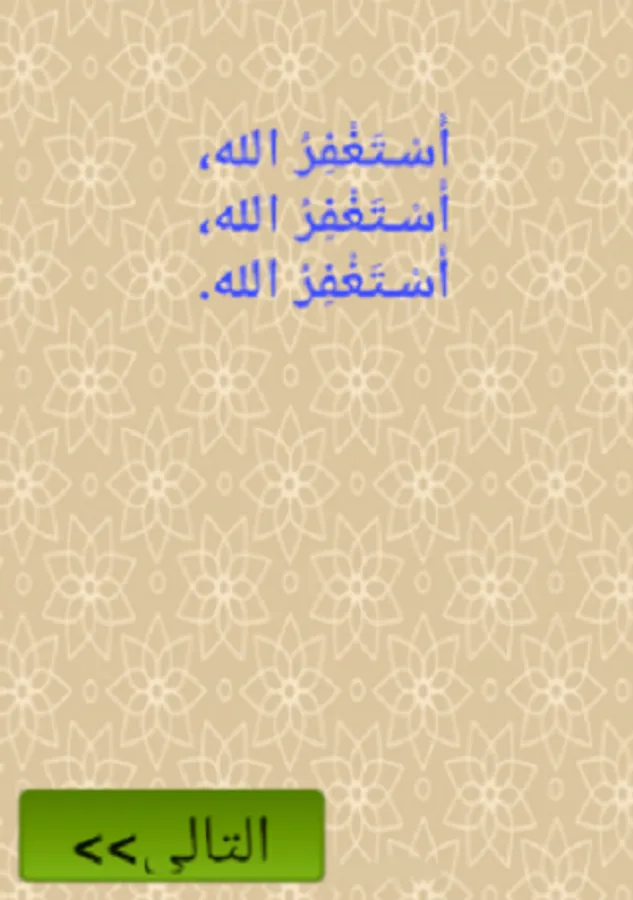 أَسْـتَغْفِرُ الله،
أَسْـتَغْفِرُ الله،
أَسْـتَغْفِرُ الله.
التالي>>